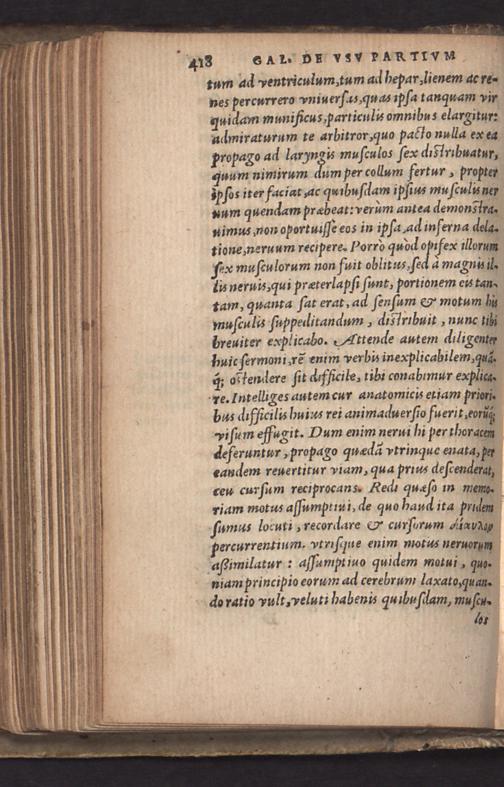 418 GAL. DE VSV PARTIVM
tum ad ventriculum, tum ad hepar, lienem ac re-
nes percurrero vniuersas, quas ipsa tanquam vir
quidam munificus, particulis omnibus elargitur:
admiraturum te arbitror, quo pacto nulla ex ea
propago ad laryngis musculos sex distribuatur,
quum nimirum dum per collum fertur, propter
ipsos iter faciat, ac quibusdam ipsius musculis ner
uum quendam præbeat: verùm antea demonstra-
uimus, non oportuisse eos in ipsa, ad inferna dela-
tione, neruum recipere. Porrò quòd opifex illorum
sex musculorum non fuit oblitus, sed à magnis il-
lis neruis, qui præterlapsi sunt, portionem eis tan-
tam, quanta sat erat, ad sensum & motum his
musculis suppeditandum, distribuit, nunc tibi
breuiter explicabo. Attende autem diligenter
huic sermoni, rē enim verbis inexplicabilem, quā-
q; ostendere sit difficile, tibi conabimur explica-
re. Intelliges autem cur anatomicis etiam priori-
bus difficilis huius rei animaduersio fuerit, eorūq;
visum effugit. Dum enim nerui hi per thoracem
deferuntur, propago quædā vtrinque enata, per
eandem reuertitur viam, qua prius descenderat,
ceu cursum reciprocans. Redi quæso in memo-
riam motus assumptiui, de quo haud ita pridem
sumus locuti, recordare & cursorum δίαυλον
percurrentium. vtrisque enim motus neruorum
assimilatur: assumptiuo quidem motui, quo-
niam principio eorum ad cerebrum laxato, quan-
do ratio vult, veluti habenis quibusdam, muscu-
los